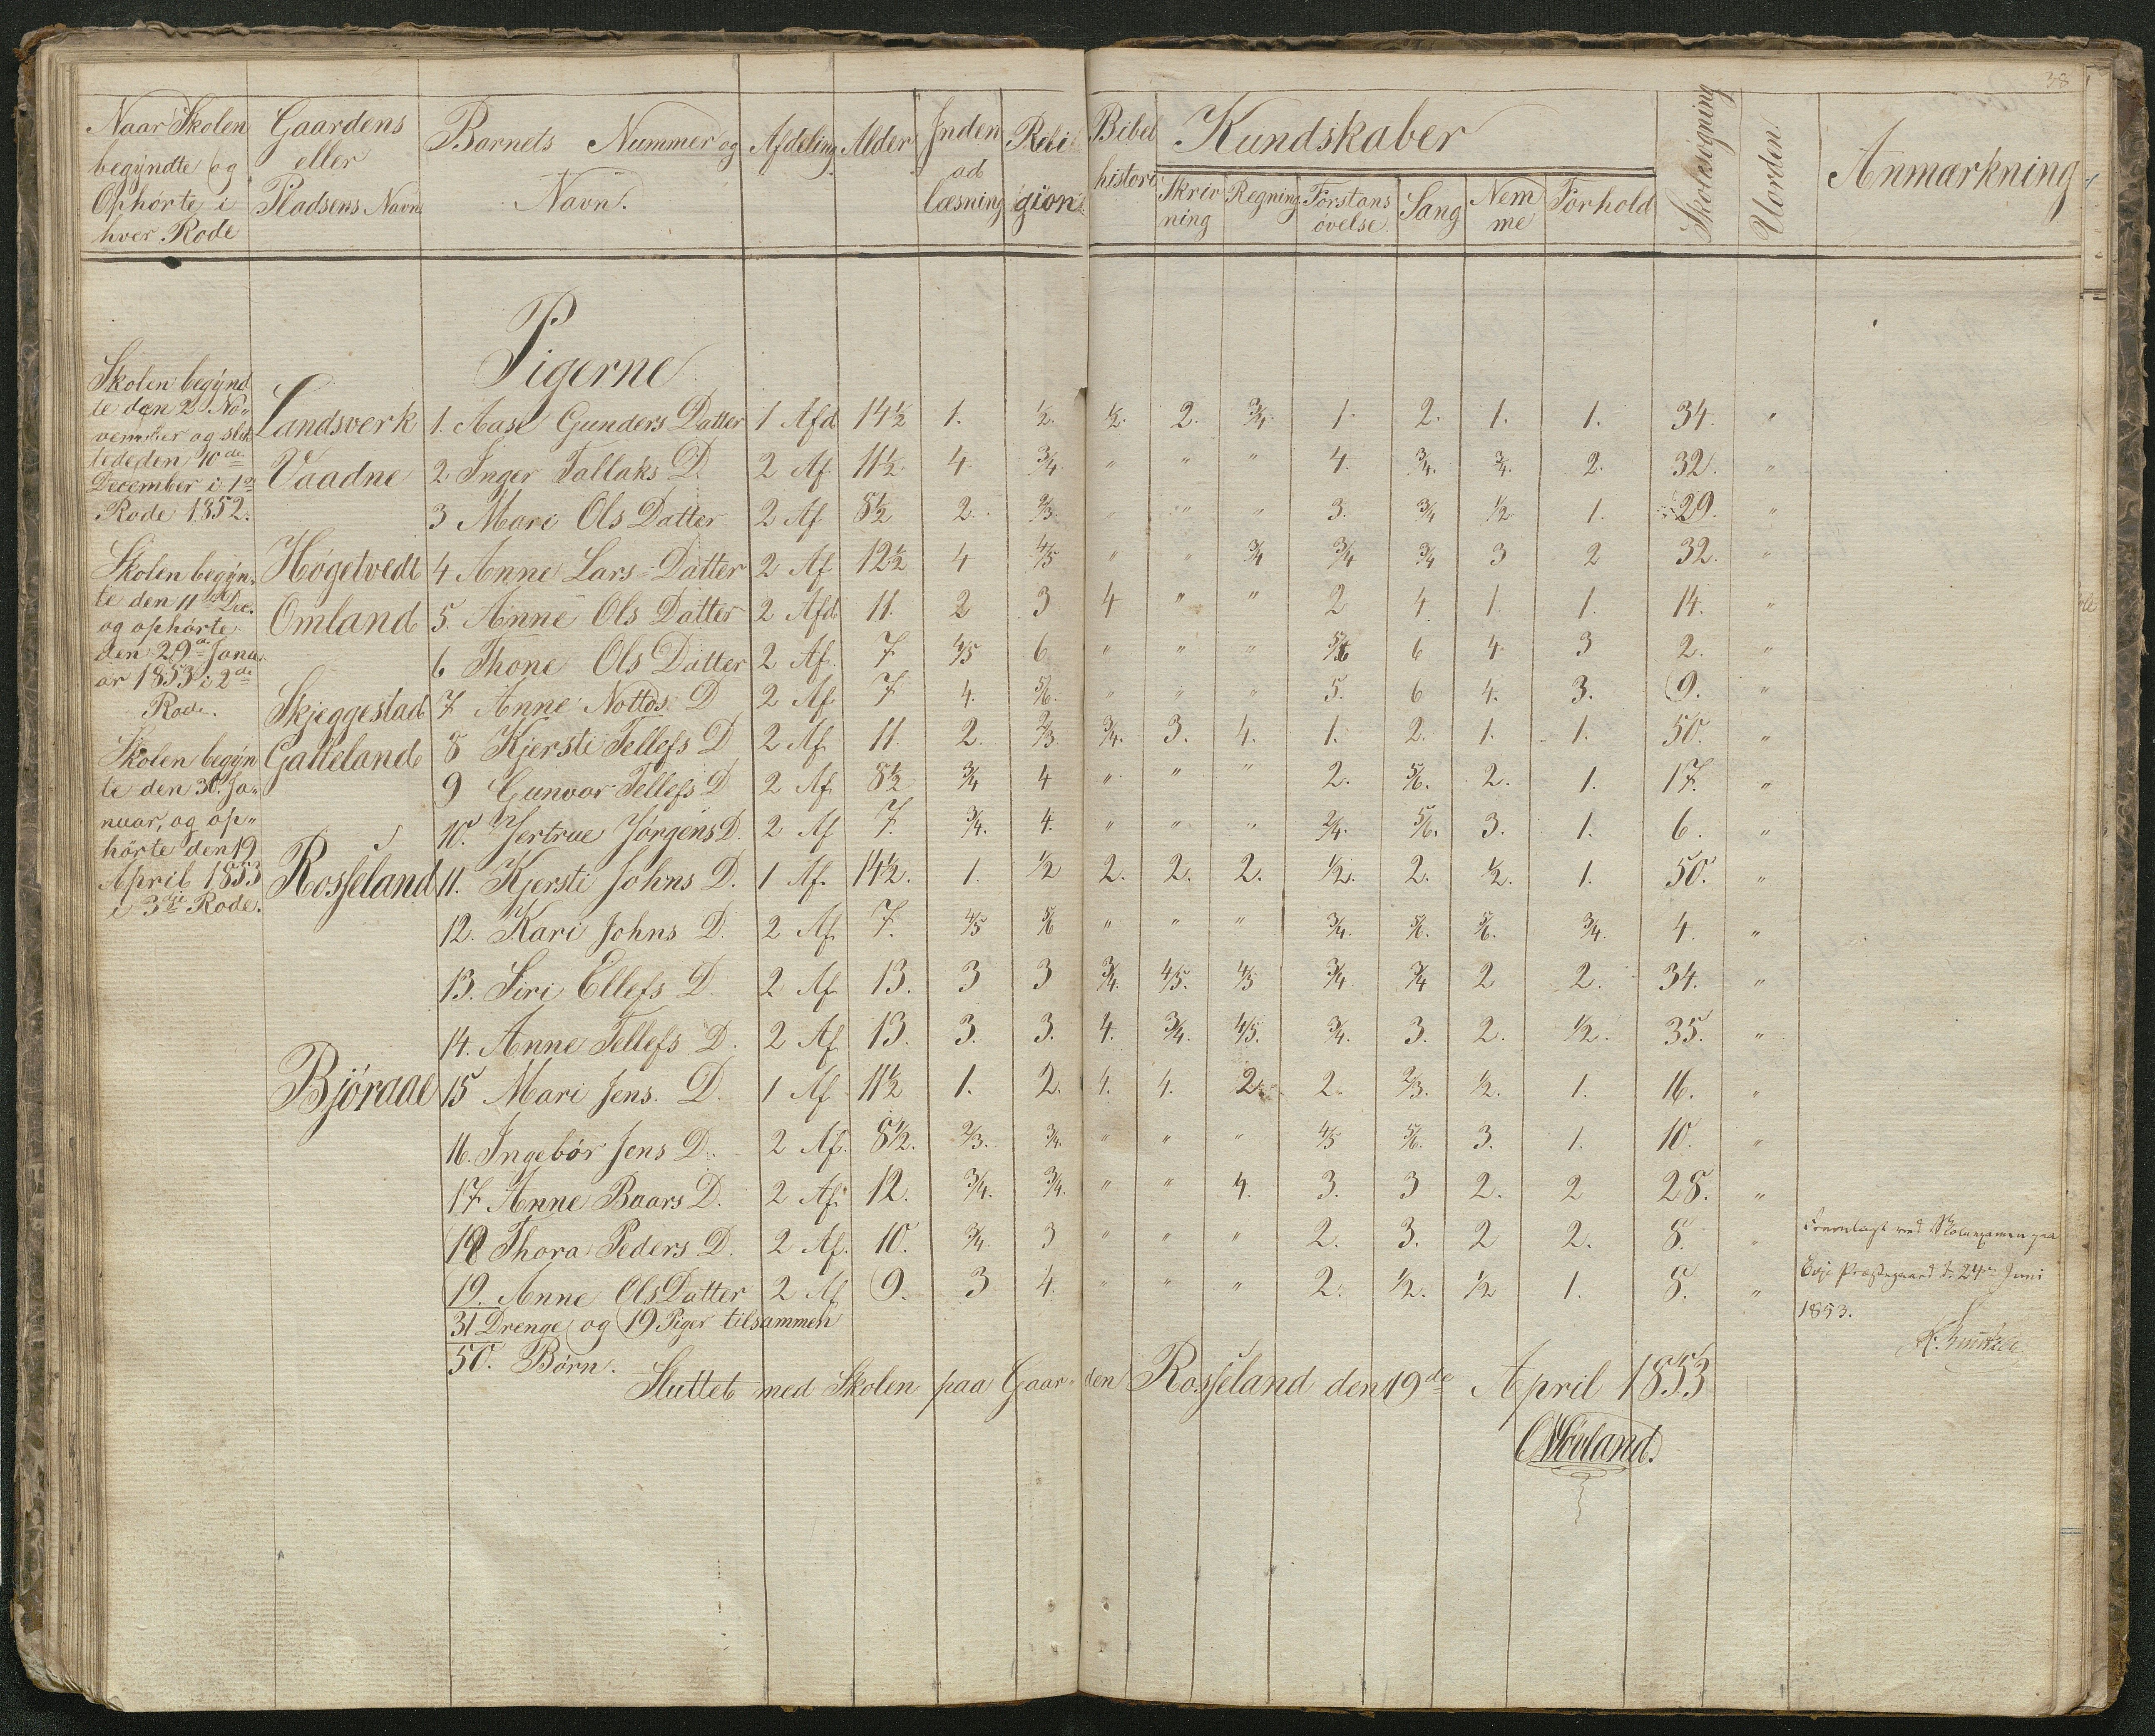 38
Naar Skolen begyndte og Ophørte i hver Rode
Gaardens eller Pladsens Navn.
Barnets Nummer og Navn.
Afdeling
Alder
Inden ad læsning
Religion
Bibel histori
Kundskaber
Skriv ning
Regning
Forstans øvelse
Sang
Nem me
Forhold
Skolesøgning
Uorden
Anmærkning
Pigerne
Skolen begynd
te den 2 No„
vember og slut
tede den 10de
December i 1ste
Rode 1852.
Skolen begyn„
te den 11te Dec.
og ophørte
den 29de Janu„
ar 1853 i 2den
Rode.
Skolen begyn
te den 30. Ja„
nuar, og op„
hørte den 19
April 1853
i 3die Rode.
Landsverk 1. Aase Gunders Datter 1 Afd 14½ 1. ½. ½. 2. ¾. 1. 2. 1. 1. 34. „
Vaadne 2. Inger Tallaks D. 2 Af 11½ 4. ¾. „ „ „ 4. ¾. ¾. 2. 32. „
3 Mari Ols Datter 2 Af 8½ 2. 2/3. „ „ „ 3. ¾ ½ 1. 29. „
Høgetvedt 4 Anne Lars Datter 2 Af 12½ 4 4/5 „ „ ¾ ¾ ¾ 3 2 32. „
Omland 5. Anne Ols Datter 2 Afd 11. 2 3 4 „ „ 2 4 1. 1. 14. „
6 Thone Ols Datter 2 Af. 7. 4/5 6 „ „ „ 5/6 6 4 3 2. „
Skjeggestad 7 Anne Nottos D 2 Af 7. 4. 5/6. „ „ „ 5. 6 4. 3. 9. „
Galteland 8 Kjersti Tellefs D 2 Af. 11. 2. 2/3. ¾. 3. 4. 1. 2. 1. 1. 50. „
9 Gunvor Tellefs D 2 Af. 8½ ¾ 4 „ „ „ 2. 5/6. 2. 1. 17. „
10. Jertrue Jørgens D. 2 Af 7. ¾. 4. „ „ „ 2/4. 5/6. 3. 1. 6. „
Rosseland 11. Kjersti Johns D. 1 Af. 14½. 1. ½ 2. 2. 2. ½. 2. ½. 1. 50. „
12. Kari Johns D. 2 Af. 7. 4/5 5/6 „ „ „ ¾. 5/6. 5/6. ¾. 4. „
13. Siri Ellefs D. 2 Af 13. 3 3 ¾. 4/5. 4/5 ¾. ¾ 2 2. 34. „
14. Anne Tellefs D. 2 Af 13. 3. 3. 4. ¾. 4/5. ¾. 3. 2. ½. 35. „
Bjøraae 15 Mari Jens D. 1 Af 11½ 1. 2. 4. 4. 2. 2. 2/3. ½. 1. 16. „
16. Ingebør Jens D. 2 Af. 8½. 2/3. ¾. „ „ „ 4/5 5/6. 3. 1. 10. „
17 Anne Baars D. 2 Af. 12. ¾. ¾. „ „ 4. 3. 3 2. 2 28. „
18 Thora Peders D. 2 Af. 10. ¾. 3 „ „ „ 2. 3. 2 2. 8. „
19. Anne Ols Datter 2 Af 9. 3 4. „ „ „ 2. ½. ½ 1. 8. „
31 Drenge og 19 Piger tilsammen
50. Børn.
Sluttet med Skolen paa Gaar„den Rosseland den 19de April 1853
Fremlagt ved Skoleexamen paa
Evje Præstegaard d. 24de Juni
1853.